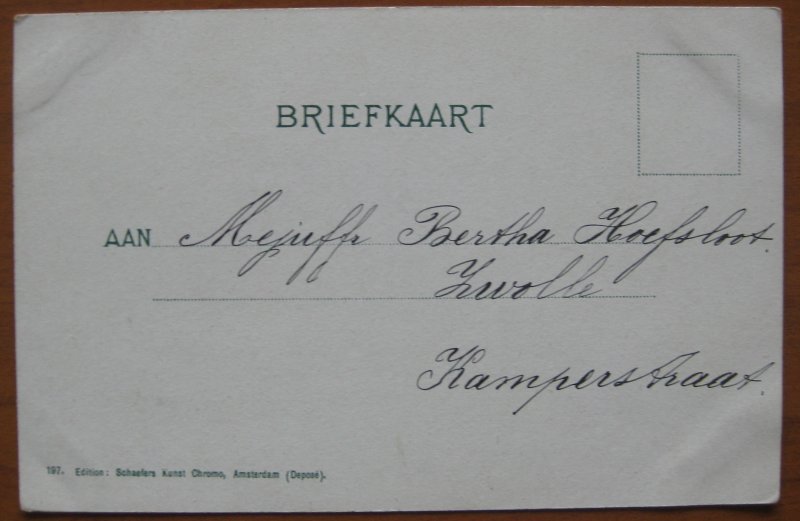 BRIEFKAART
AAN Mejuffr Bertha Hoefsloot.
Zwolle
Kamperstraat.
197. Edition: Schaefers Kunst Chromo, Amsterdam (Deposé).